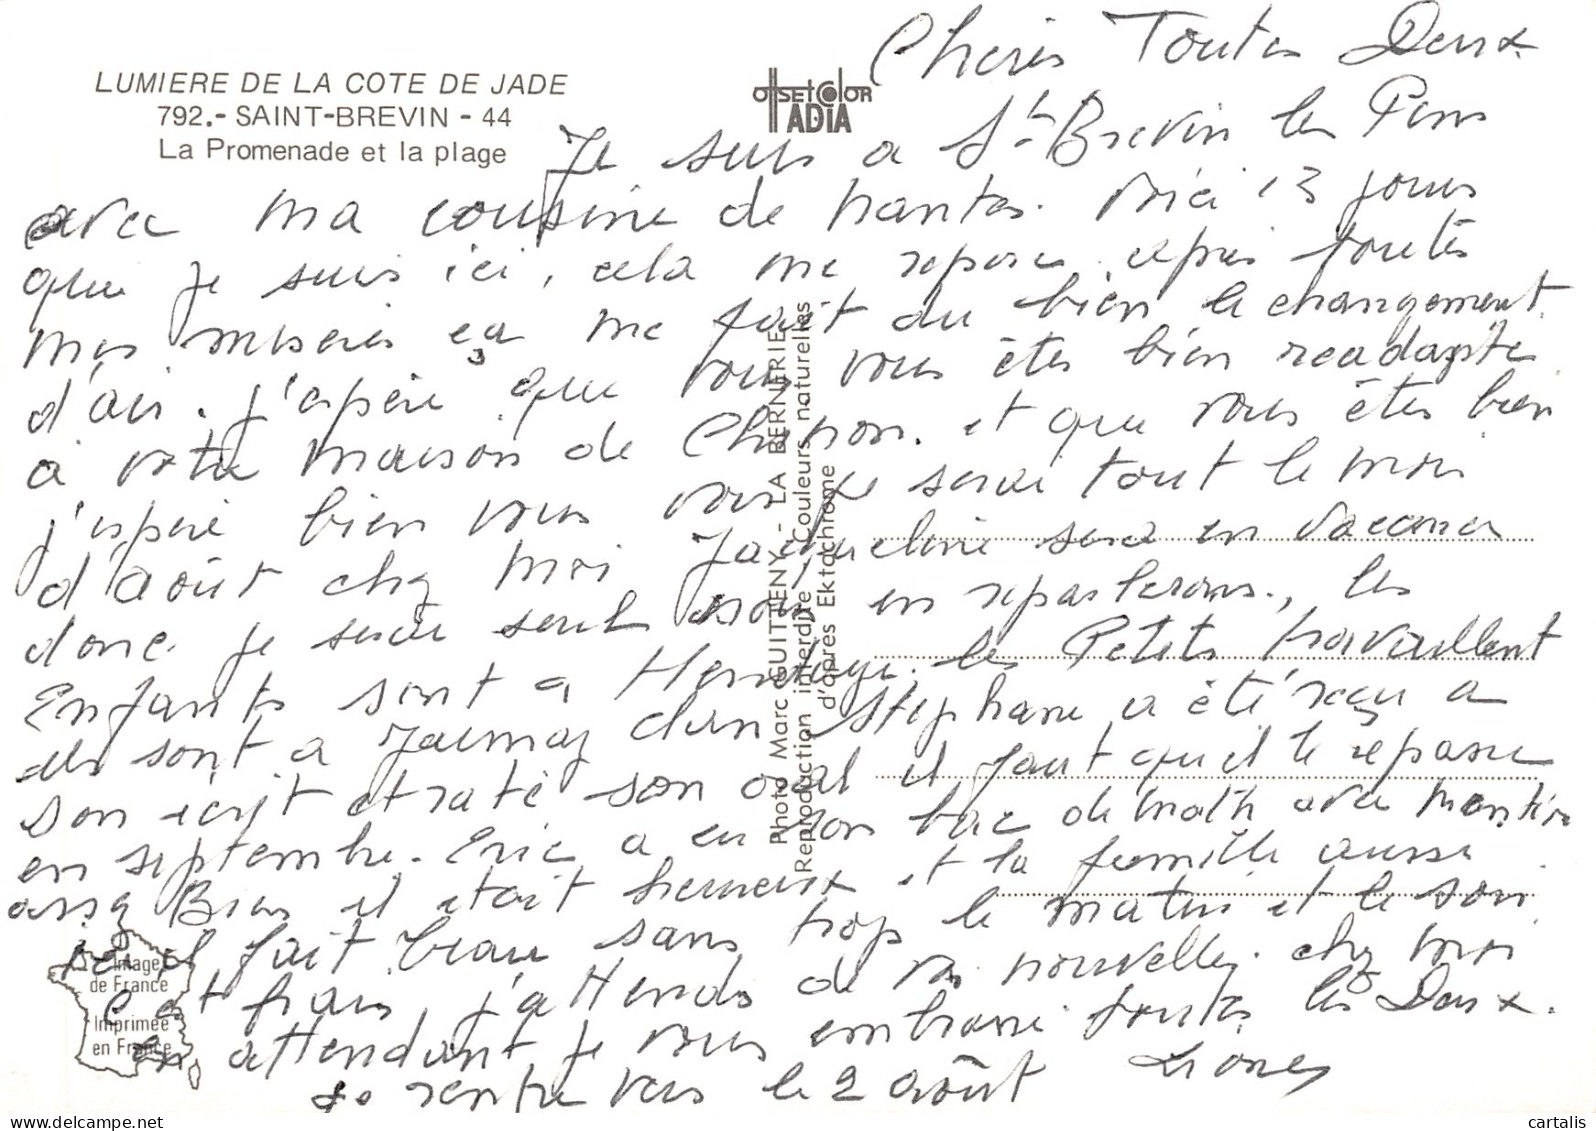 LUMIERE DE LA COTE DE JADE
792.- SAINT-BREVIN - 44
La Promenade et la plage
OffsetColor
ADIA
Cheres Toutes Deux
Je suis a St Brevin les Pins
avec ma cousine de nantes. Voici 13 jours
que je suis ici, cela me repose. apres toutes
mes miseres ça me fait du bien le changement
d'air. J'espère que vous vous êtes bien readapte
a votre maison de Chinon. et que vous êtes bien
j'espere bien vous voir je serai tout le moi
d'août chez moi Jacqueline sera en vacances
donc je serai seul nous en reparlerons., les
Enfants sont a Hendaye. les Petits travaillent
ils sont a Jaunay Clan Stephane a été reçu a
son écrit et raté son oral il faut qu'il le repasse
en septembre. Eric a eu son bac de math avec mention
assez Bien il etait heureux et la famille aussi
ici il fait beau sans trop le matin et le soir
c'est frais j'attends de vos nouvelles. chez moi
en attendant je vous embrasse toutes les Deux.
Je rentre vers le 2 août
Photo Marc GUITTENY - LA BERNERIE
Reproduction interdite Couleurs naturelles
d'après Ektachrome
Image
de France
Imprimée
en France
delcampe.net
cartalis